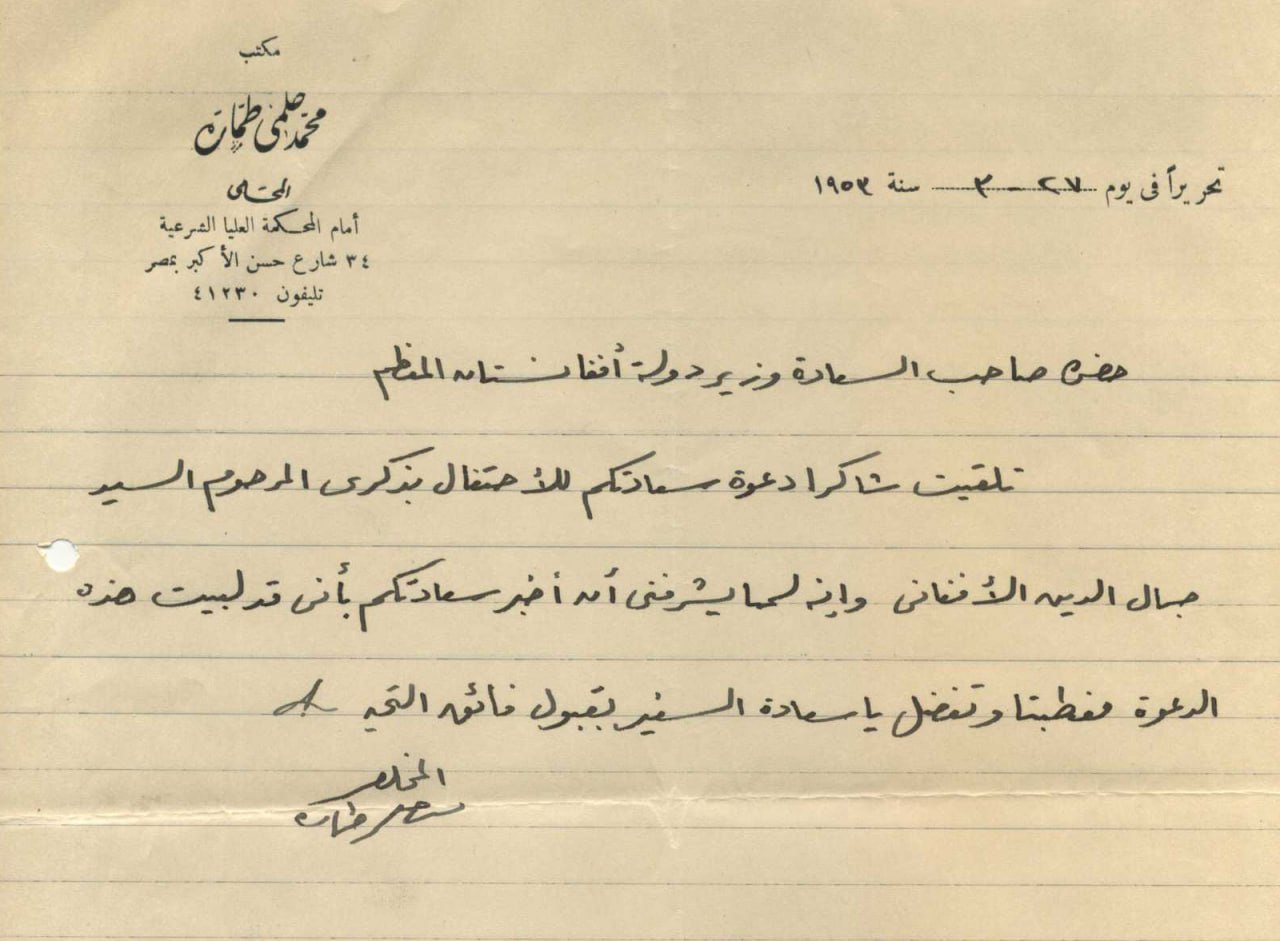 مكتب
محمد حلمى طمارة
المحامى
أمام المحكمة العليا الشرعية
٣٤ شارع حسن الأكبر بمصر
تليفون ٤١٢٣٠
تحريراً فى يوم ٢٧ - ٣ سنة ١٩٥٣
حضرة صاحب السعادة وزير دولة أفغانستان المفظم
تلقيت شاكرا دعوة سعادتكم للأحتفال بذكرى المرحوم السيد
جمال الدين الأفغانى وإنه لمما يشرفنى أن أخبر سعادتكم بأنى قد لبيت هذه
الدعوة مغطبتا وتفضل يا سعادة السفير بقبول فائق التحيه
المخلص
طمارة